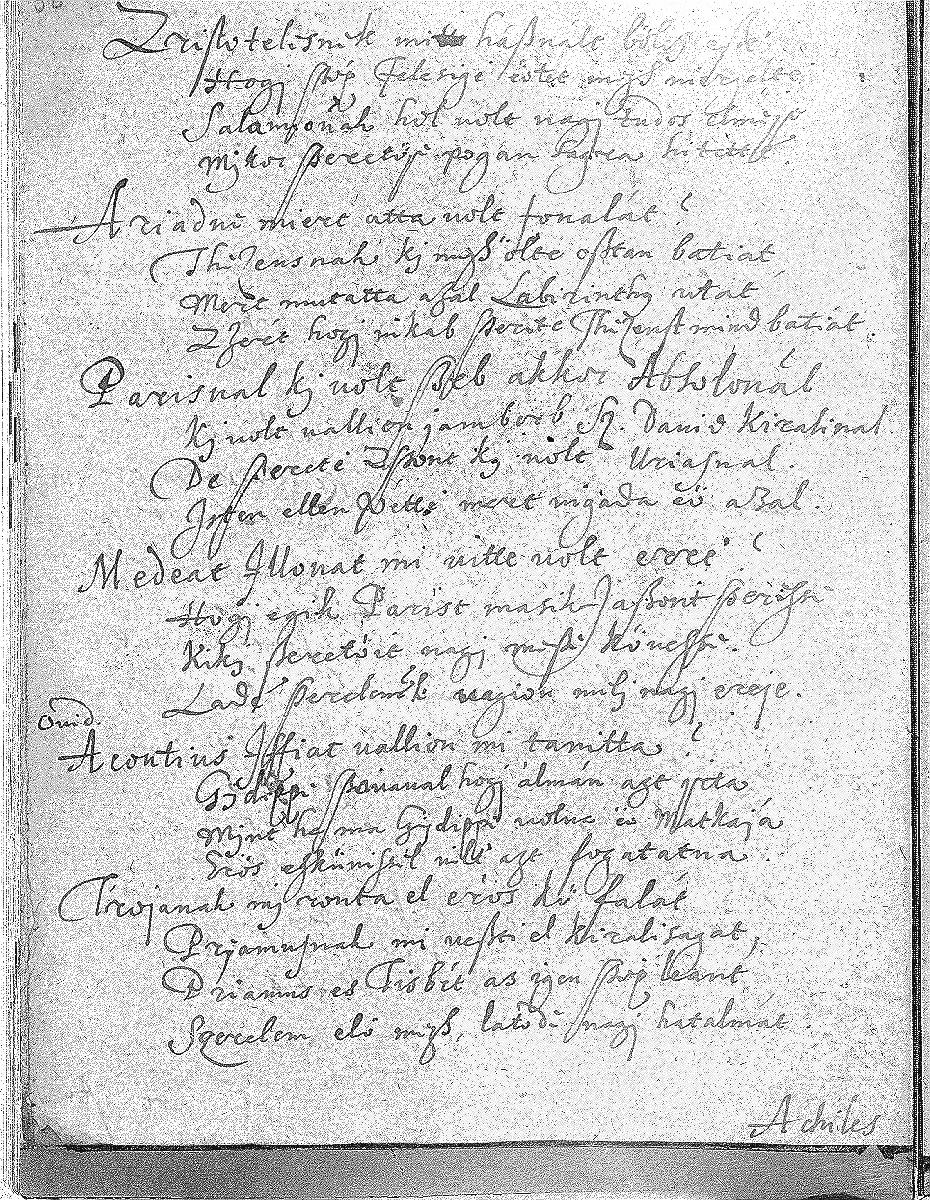 Aristotelisnek mit haßnalt bölcz
Hogj ßep Felesige
Salamonnak hol volt nagj tudos Elmeje
Mikor ßeretöje pogan hitette
Ariadne miert atta volt fonalát?
Thizeusnak kj megh ölte oßtan batiat
Mert mutatta azal Labirinthy utat
Azert hogj inkab ßerite Thizeust mind batiat.
Parisnal kj volt ßeb akkor Absolonál
Kj volt vallion jamborb Sz. David kiralinal.
De ßerete Aßont kj volt Uriasnal.
Isten ellen vette meret vigada eö azal.
Medeat Illonat mi vitte volt erre?
Hogj egik Parist masik Jaßont ßeresse
Kikj ßeretöit nagj meßi kövesse.
Ladd ßerelemnek vagion milj nagj ereje.
Ovid.
Acontius Iffiat vallion mi tanitta?
Gidippi ßavaval hogj álmán azt irta
Mint ha ma Gidippi volna eö Matkajá
Erös esküvissil vilt azt fogatatna.
Trojanak mj ronta el erös kü falát
Priamusnak mi veßti el kiralisagat,
Priamus es Tisbét as igen ßép leant
Szerelem elö megh, latode nagj hatalmát.
Achiles